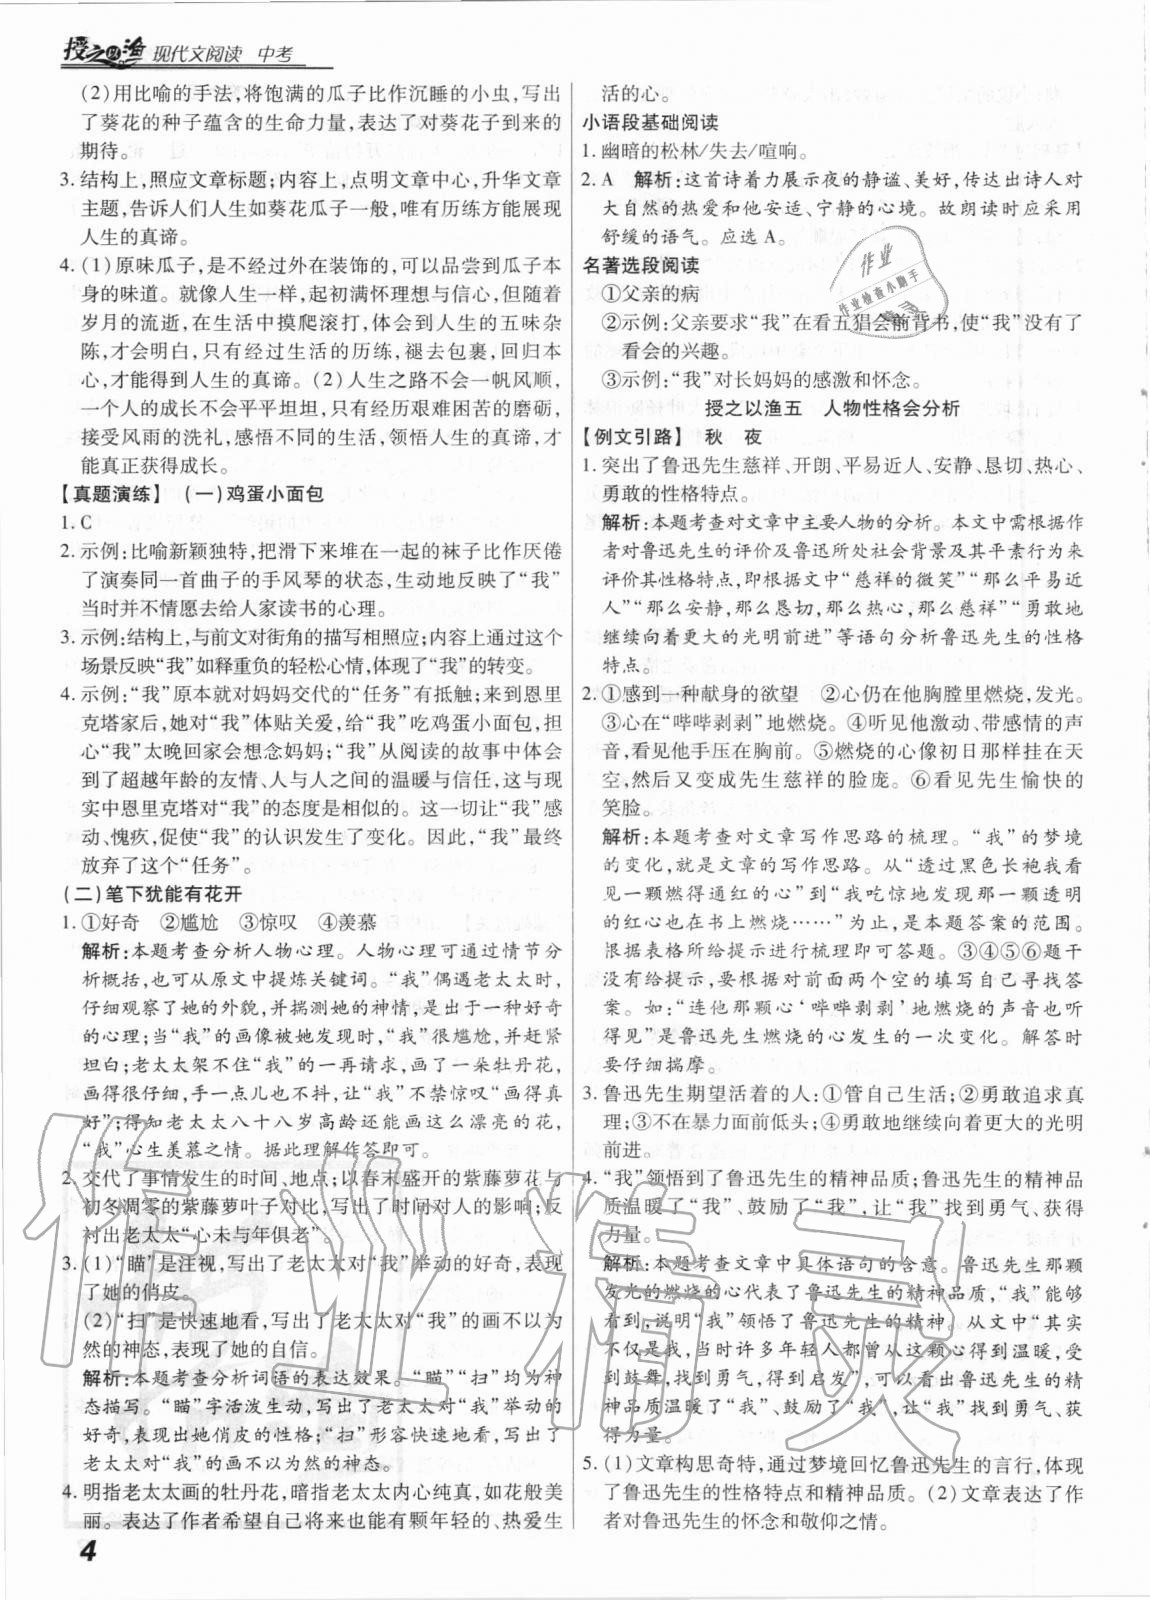 授之以渔 现代文阅读 中考
(2)用比喻的手法,将饱满的瓜子比作沉睡的小虫,写出
了葵花的种子蕴含的生命力量,表达了对葵花子到来的
期待。
3. 结构上,照应文章标题;内容上,点明文章中心,升华文章
主题,告诉人们人生如葵花瓜子一般,唯有历练方能展现
人生的真谛。
4. (1)原味瓜子,是不经过外在装饰的,可以品尝到瓜子本
身的味道。就像人生一样,起初满怀理想与信心,但随着
岁月的流逝,在生活中摸爬滚打,体会到人生的五味杂
陈,才会明白,只有经过生活的历练,褪去包裹,回归本
心,才能得到人生的真谛。(2)人生之路不会一帆风顺,
一个人的成长不会平平坦坦,只有经历艰难困苦的磨砺,
接受风雨的洗礼,感悟不同的生活,领悟人生的真谛,才
能真正获得成长。
【真题演练】 (一)鸡蛋小面包
1. C
2. 示例:比喻新颖独特,把滑下来堆在一起的袜子比作厌倦
了演奏同一首曲子的手风琴的状态,生动地反映了“我”
当时并不情愿去给人家读书的心理。
3. 示例:结构上,与前文对街角的描写相照应;内容上通过这个
场景反映“我”如释重负的轻松心情,体现了“我”的转变。
4. 示例:“我”原本就对妈妈交代的“任务”有抵触;来到恩里
克塔家后,她对“我”体贴关爱,给“我”吃鸡蛋小面包,担
心“我”太晚回家会想念妈妈;“我”从阅读的故事中体会
到了超越年龄的友情、人与人之间的温暖与信任,这与现
实中恩里克塔对“我”的态度是相似的。这一切让“我”感
动、愧疚,促使“我”的认识发生了变化。因此,“我”最终
放弃了这个“任务”。
(二)笔下犹能有花开
1. ①好奇 ②尴尬 ③惊叹 ④羡慕
解析:本题考查分析人物心理。人物心理可通过情节分
析概括,也可以从原文中提炼关键词。“我”偶遇老太太时,
仔细观察了她的外貌,并揣测她的神情,是出于一种好奇
的心理;当“我”的画像被她发现时,“我”很尴尬,并赶紧
坦白;老太太架不住“我”的一再请求,画了一朵牡丹花,
画得很仔细,手一点儿也不抖,让“我”不禁惊叹“画得真
好”;得知老太太八十八岁高龄还能画这么漂亮的花,
“我”心生羡慕之情。据此理解作答即可。
2. 交代了事情发生的时间、地点;以春末盛开的紫藤萝花与
初冬凋零的紫藤萝叶子对比,写出了时间对人的影响;反
衬出老太太“心未与年俱老”。
3. (1)“瞄”是注视,写出了老太太对“我”举动的好奇,表现
了她的俏皮。
(2)“扫”是快速地看,写出了老太太对“我”的画不以为
然的神态,表现了她的自信。
解析:本题考查分析词语的表达效果。“瞄”“扫”均为神
态描写。“瞄”字活泼生动,写出了老太太对“我”举动的
好奇,表现出她俏皮的性格;“扫”形容快速地看,写出了
老太太对“我”的画不以为然的神态。
4. 明指老太太画的牡丹花,暗指老太太内心纯真,如花般美
丽。表达了作者希望自己将来也能有颗年轻的、热爱生
4
活的心。
小语段基础阅读
1. 幽暗的松林/失去/喧响。
2. A 解析:这首诗着力展示夜的静谧、美好,传达出诗人对
大自然的热爱和他安适、宁静的心境。故朗读时应采用
舒缓的语气。应选A。
名著选段阅读
①父亲的病
②示例:父亲要求“我”在看五猖会前背书,使“我”没有了
看会的兴趣。
③示例:“我”对长妈妈的感激和怀念。
授之以渔五 人物性格会分析
【例文引路】 秋 夜
1. 突出了鲁迅先生慈祥、开朗、平易近人、安静、恳切、热心、
勇敢的性格特点。
解析:本题考查对文章中主要人物的分析。本文中需根据作
者对鲁迅先生的评价及鲁迅所处社会背景及其平素行为来
评价其性格特点,即根据文中“慈祥的微笑”“那么平易近
人”“那么安静,那么恳切,那么热心,那么慈祥”“勇敢地
继续向着更大的光明前进”等语句分析鲁迅先生的性格
特点。
2. ①感到一种献身的欲望 ②心仍在他胸膛里燃烧,发光。
③心在“哔哔剥剥”地燃烧。④听见他激动、带感情的声
音,看见他手压在胸前。⑤燃烧的心像初日那样挂在天
空,然后又变成先生慈祥的脸庞。⑥看见先生愉快的
笑脸。
解析:本题考查对文章写作思路的梳理。“我”的梦境
的变化,就是文章的写作思路。从“透过黑色长袍我看
见一颗燃得通红的心”到“我吃惊地发现那一颗透明
的红心也在书上燃烧……”为止,是本题答案的范围。
根据表格所给提示进行梳理即可答题。③④⑤⑥题干
没有给提示,要根据对前面两个空的填写自己寻找答
案。如:“连他那颗心‘哔哔剥剥’地燃烧的声音也听
得见”是鲁迅先生燃烧的心发生的一次变化。解答时
要仔细揣摩。
3. 鲁迅先生期望活着的人:①管自己生活;②勇敢追求真
理;③不在暴力面前低头;④勇敢地继续向着更大的光明
前进。
4. “我”领悟到了鲁迅先生的精神品质;鲁迅先生的精神品
质温暖了“我”、鼓励了“我”,让“我”找到勇气、获得
力量。
解析:本题考查文章中具体语句的含意。鲁迅先生那颗
发光的燃烧的心代表了鲁迅先生的精神品质,“我”能够
看到,说明“我”领悟了鲁迅先生的精神。从文中“其实
不仅是我,当时许多年轻人都曾从这颗心得到温暖,受
到鼓舞,找到勇气,得到启发”,可以看出鲁迅先生的精
神品质温暖了“我”、鼓励了“我”,让“我”找到勇气、获
得力量。
5. (1)文章构思奇特,通过梦境回忆鲁迅先生的言行,体现
了鲁迅先生的性格特点和精神品质。(2)文章表达了作
者对鲁迅先生的怀念和敬仰之情。
作业
作业检查小助手
作业精灵